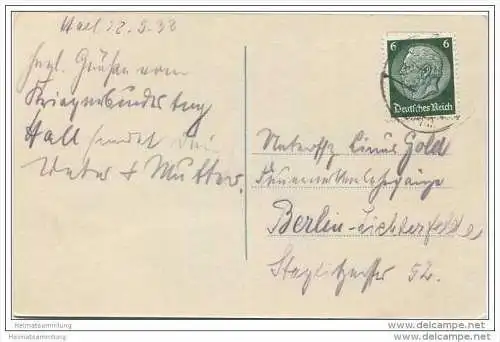 Hall 22.5.38
Herzl. Grüße vom
Kriegerbundestag
Hall sendet Dir
Vater & Mutter.
6 6
Deutsches Reich
Linus Gold
Berlin-Lichterfelde
Steglitzerstr 52.
Heimatsammlung
Heimatsammlung.com
www.delcampe.net